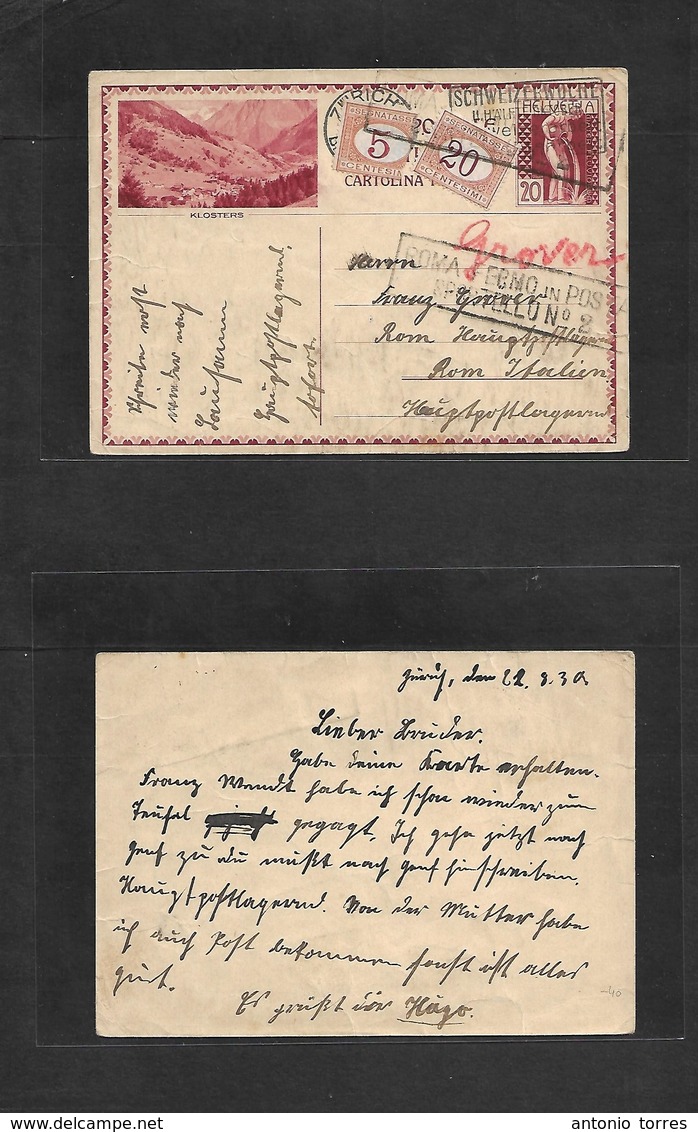 ZÜRICH
SCHWEIZERWOCHE
HELVETIA
SEGNATASSE
5
CENTESIMI
SEGNATASSE
20
CENTESIMI
CARTOLINA
20
KLOSTERS
Grover
ROMA FERMO IN POSTA
SPORTELLO No 2
Herrn
Franz Grover
Rom Hauptpostlagernd
Rom Italien
Hauptpostlagernd
Schreibe erst
wieder nach
Lausanne
Hauptpostlagernd.
sofort.
Zürich, den 22.8.30
Lieber Bruder.
Habe deine Karte erhalten.
Franz Wendt habe ich schon wieder zum
Teufel gegagt, Ich gehe jetzt nach
Genf zu du mußt nach Genf hinschreiben.
Hauptpostlagernd. Von der Mutter habe
ich auch Post bekommen sonst ist alles
gut.
Es grüßt dir Hugo.
-40
antonio torres